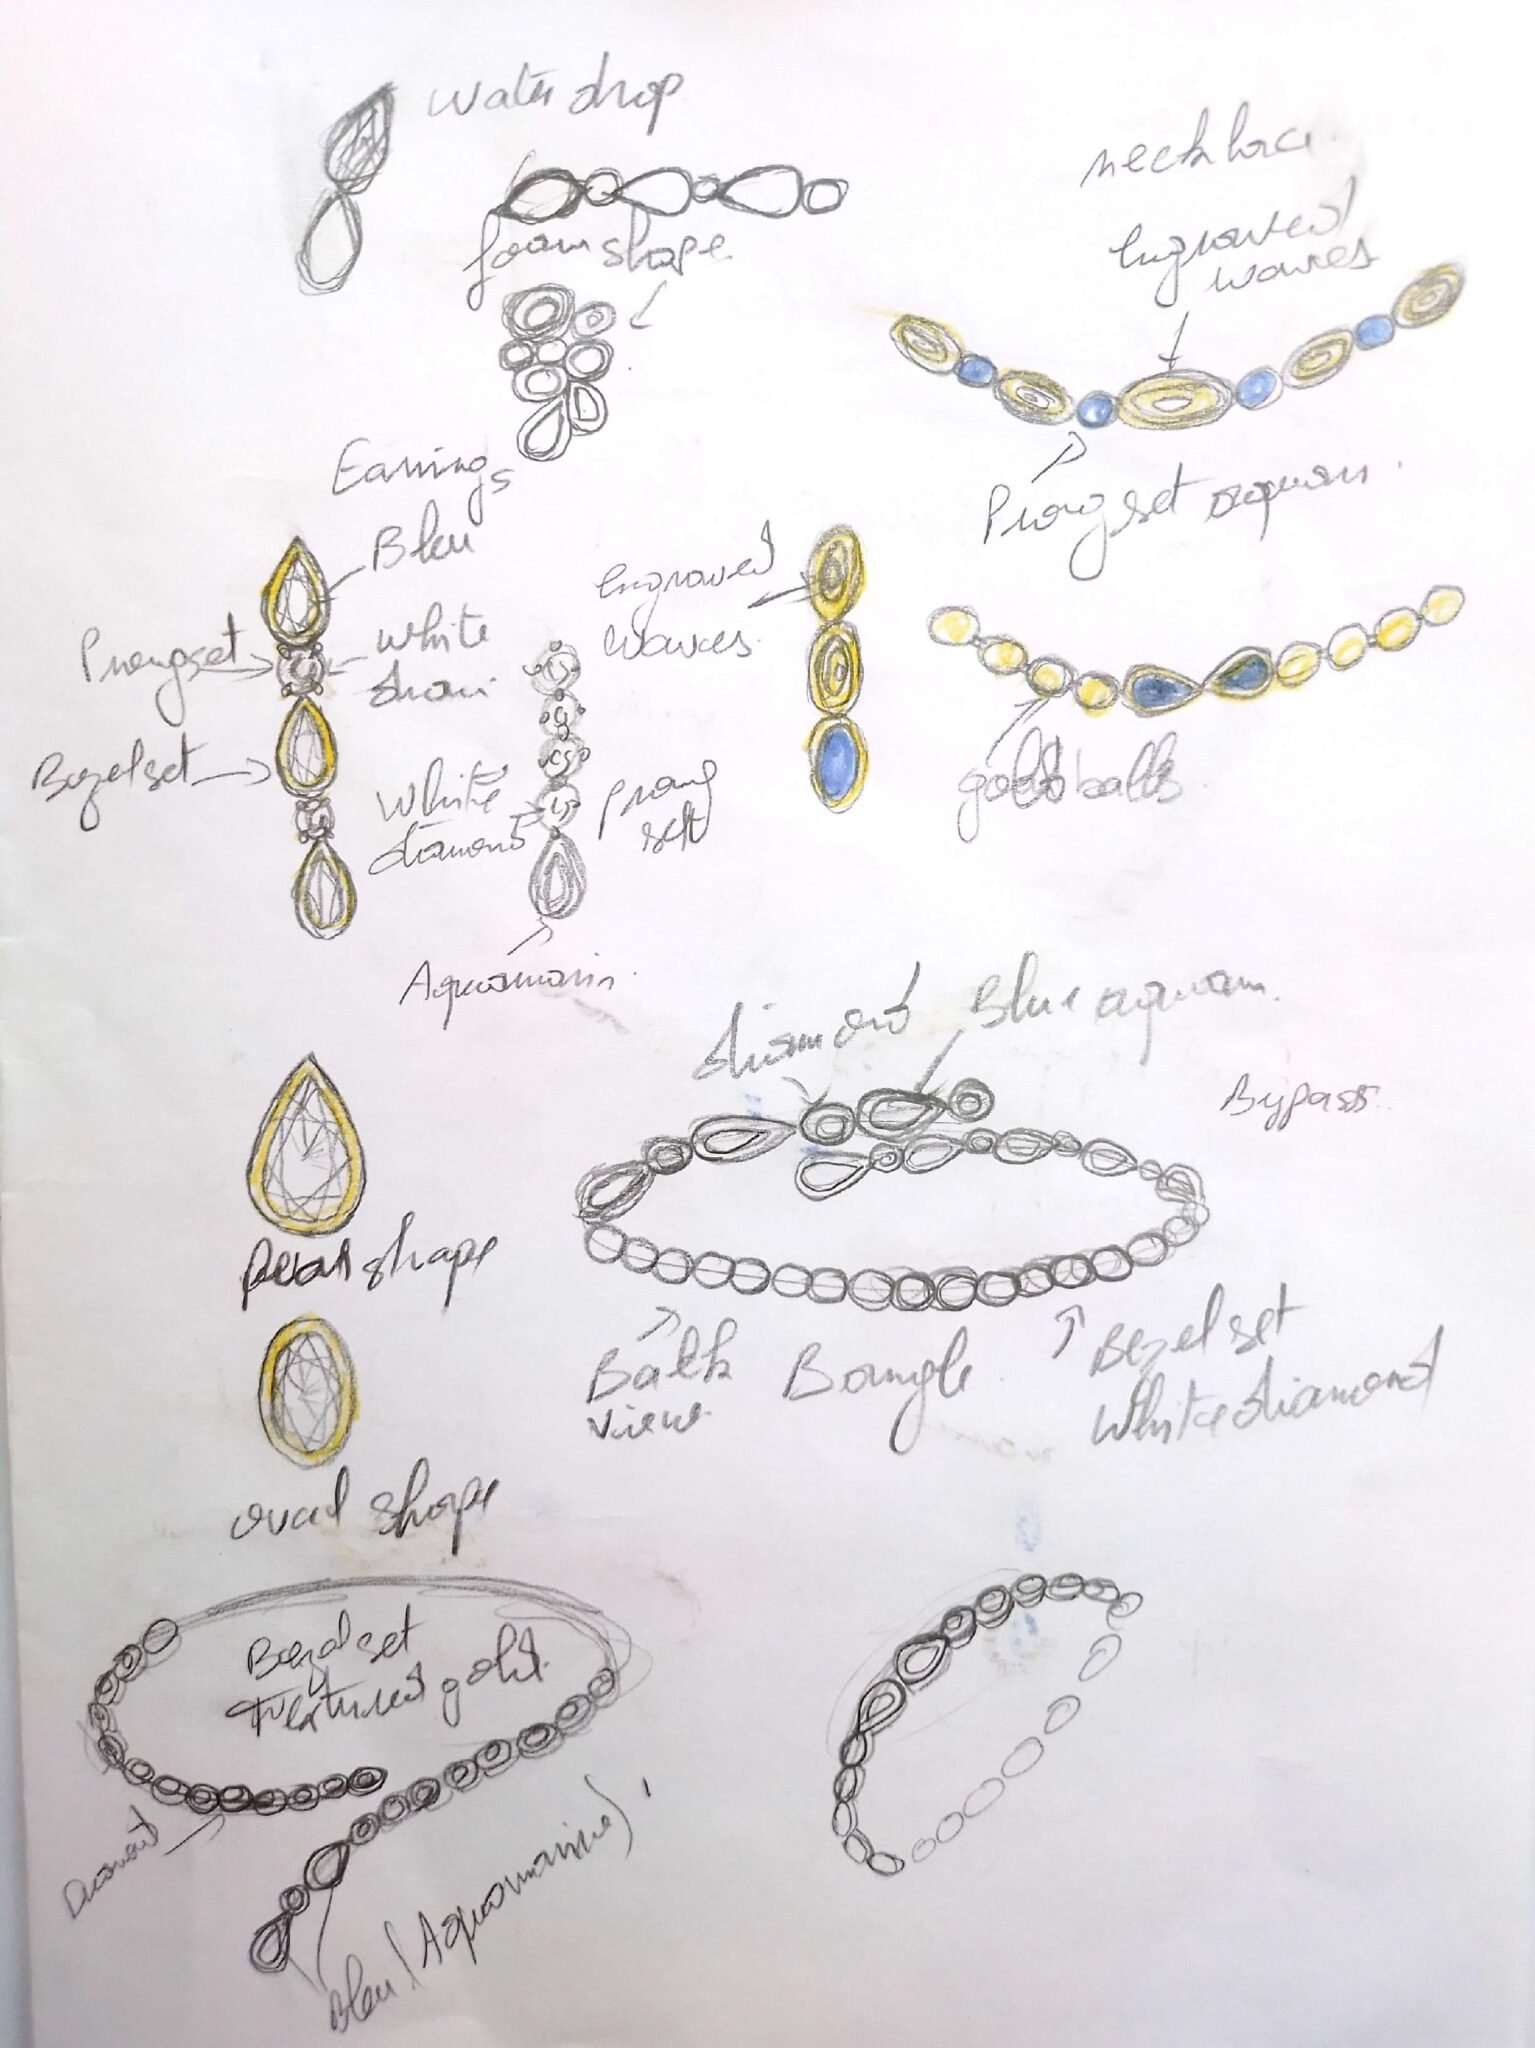 water drop
foam shape
necklace
engraved
waves
Prong set aquam.
Earrings
Bleu
Prong set
white
diam.
Bezel set
engraved
waves.
White
diamond
prong
set
Aquamarin.
gold balls.
diamond Blue aquam.
Bypass.
pear shape
Back
view.
Bangle
Bezel set
White diamond
oval shape
Bezel set
textured gold.
Diamond
Bleu (Aquamarine)